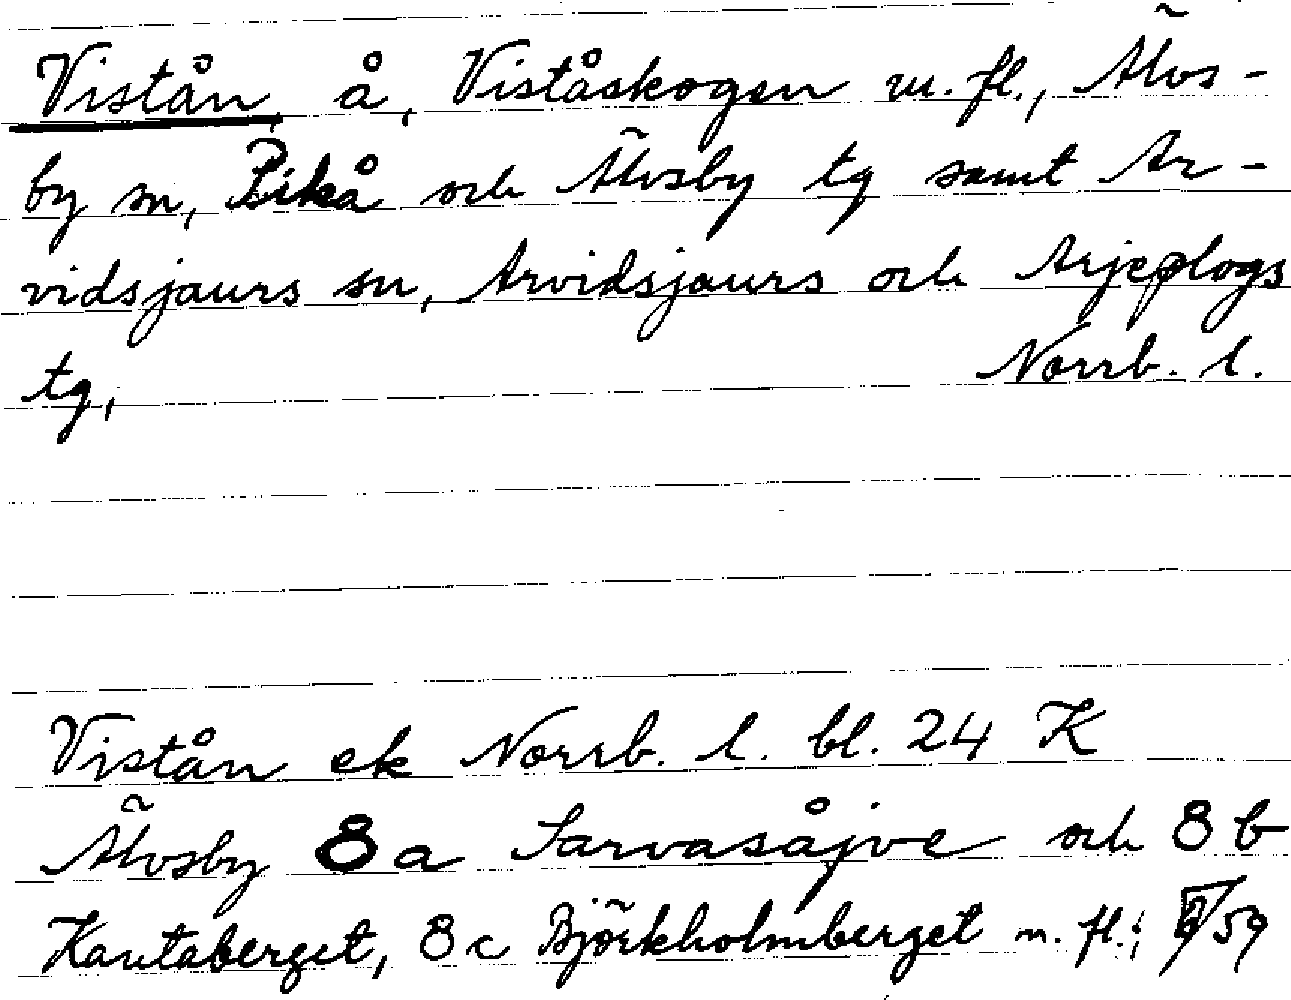 Vistån, å, Viståskogen m. fl., Älvs-
by sn, Pikå och Älvsby tg samt Ar-
vidsjaurs sn, Arvidsjaurs och Arjeplogs
tg, Norrb. l.
Vistån ek Norrb. l. bl. 24 K
Älvsby 8 a Sarvasåjve och 8 b
Kautaberget, 8 c Björkholmberget m. fl.;